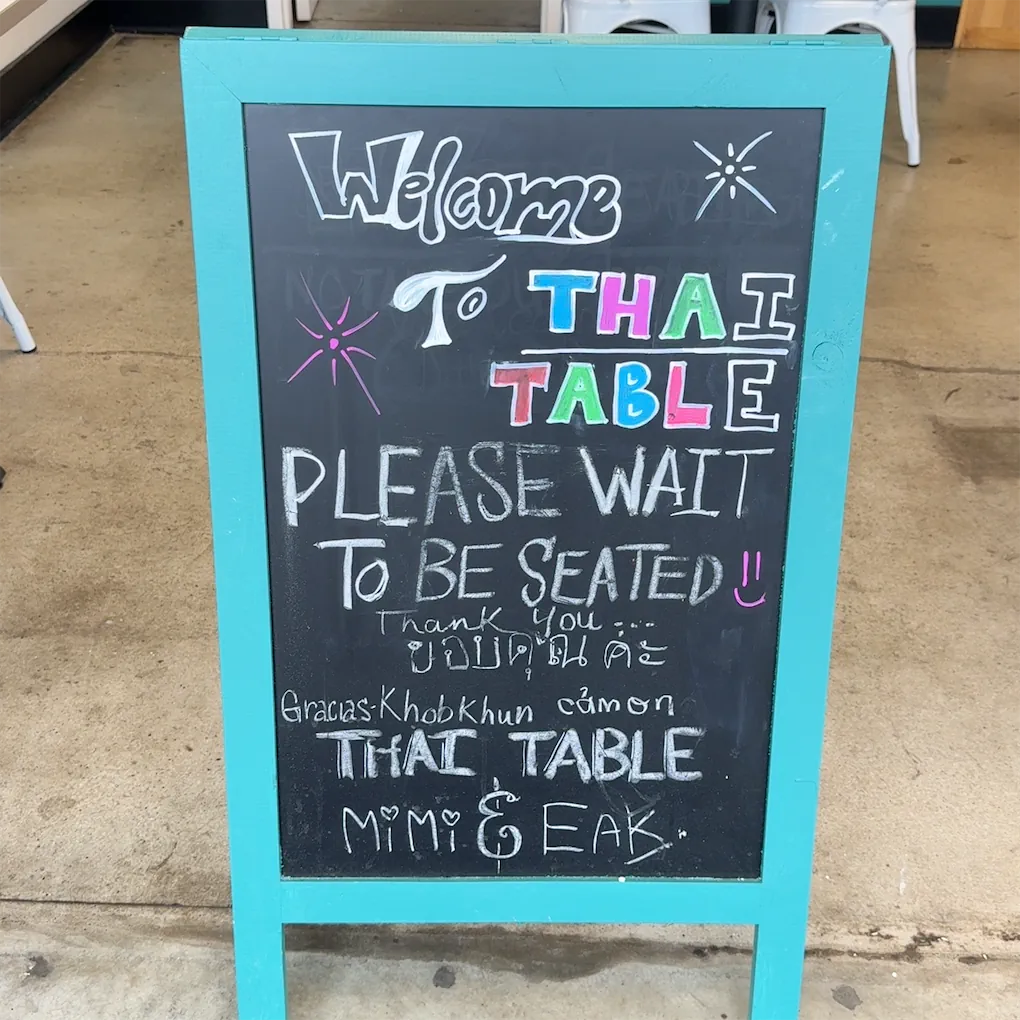 Welcome
To THAI
TABLE
PLEASE WAIT
TO BE SEATED
Thank You...
ขอบคุณ ค่ะ
Gracias-Khob Khun cảm ơn
THAI TABLE
MiMi & EAK.